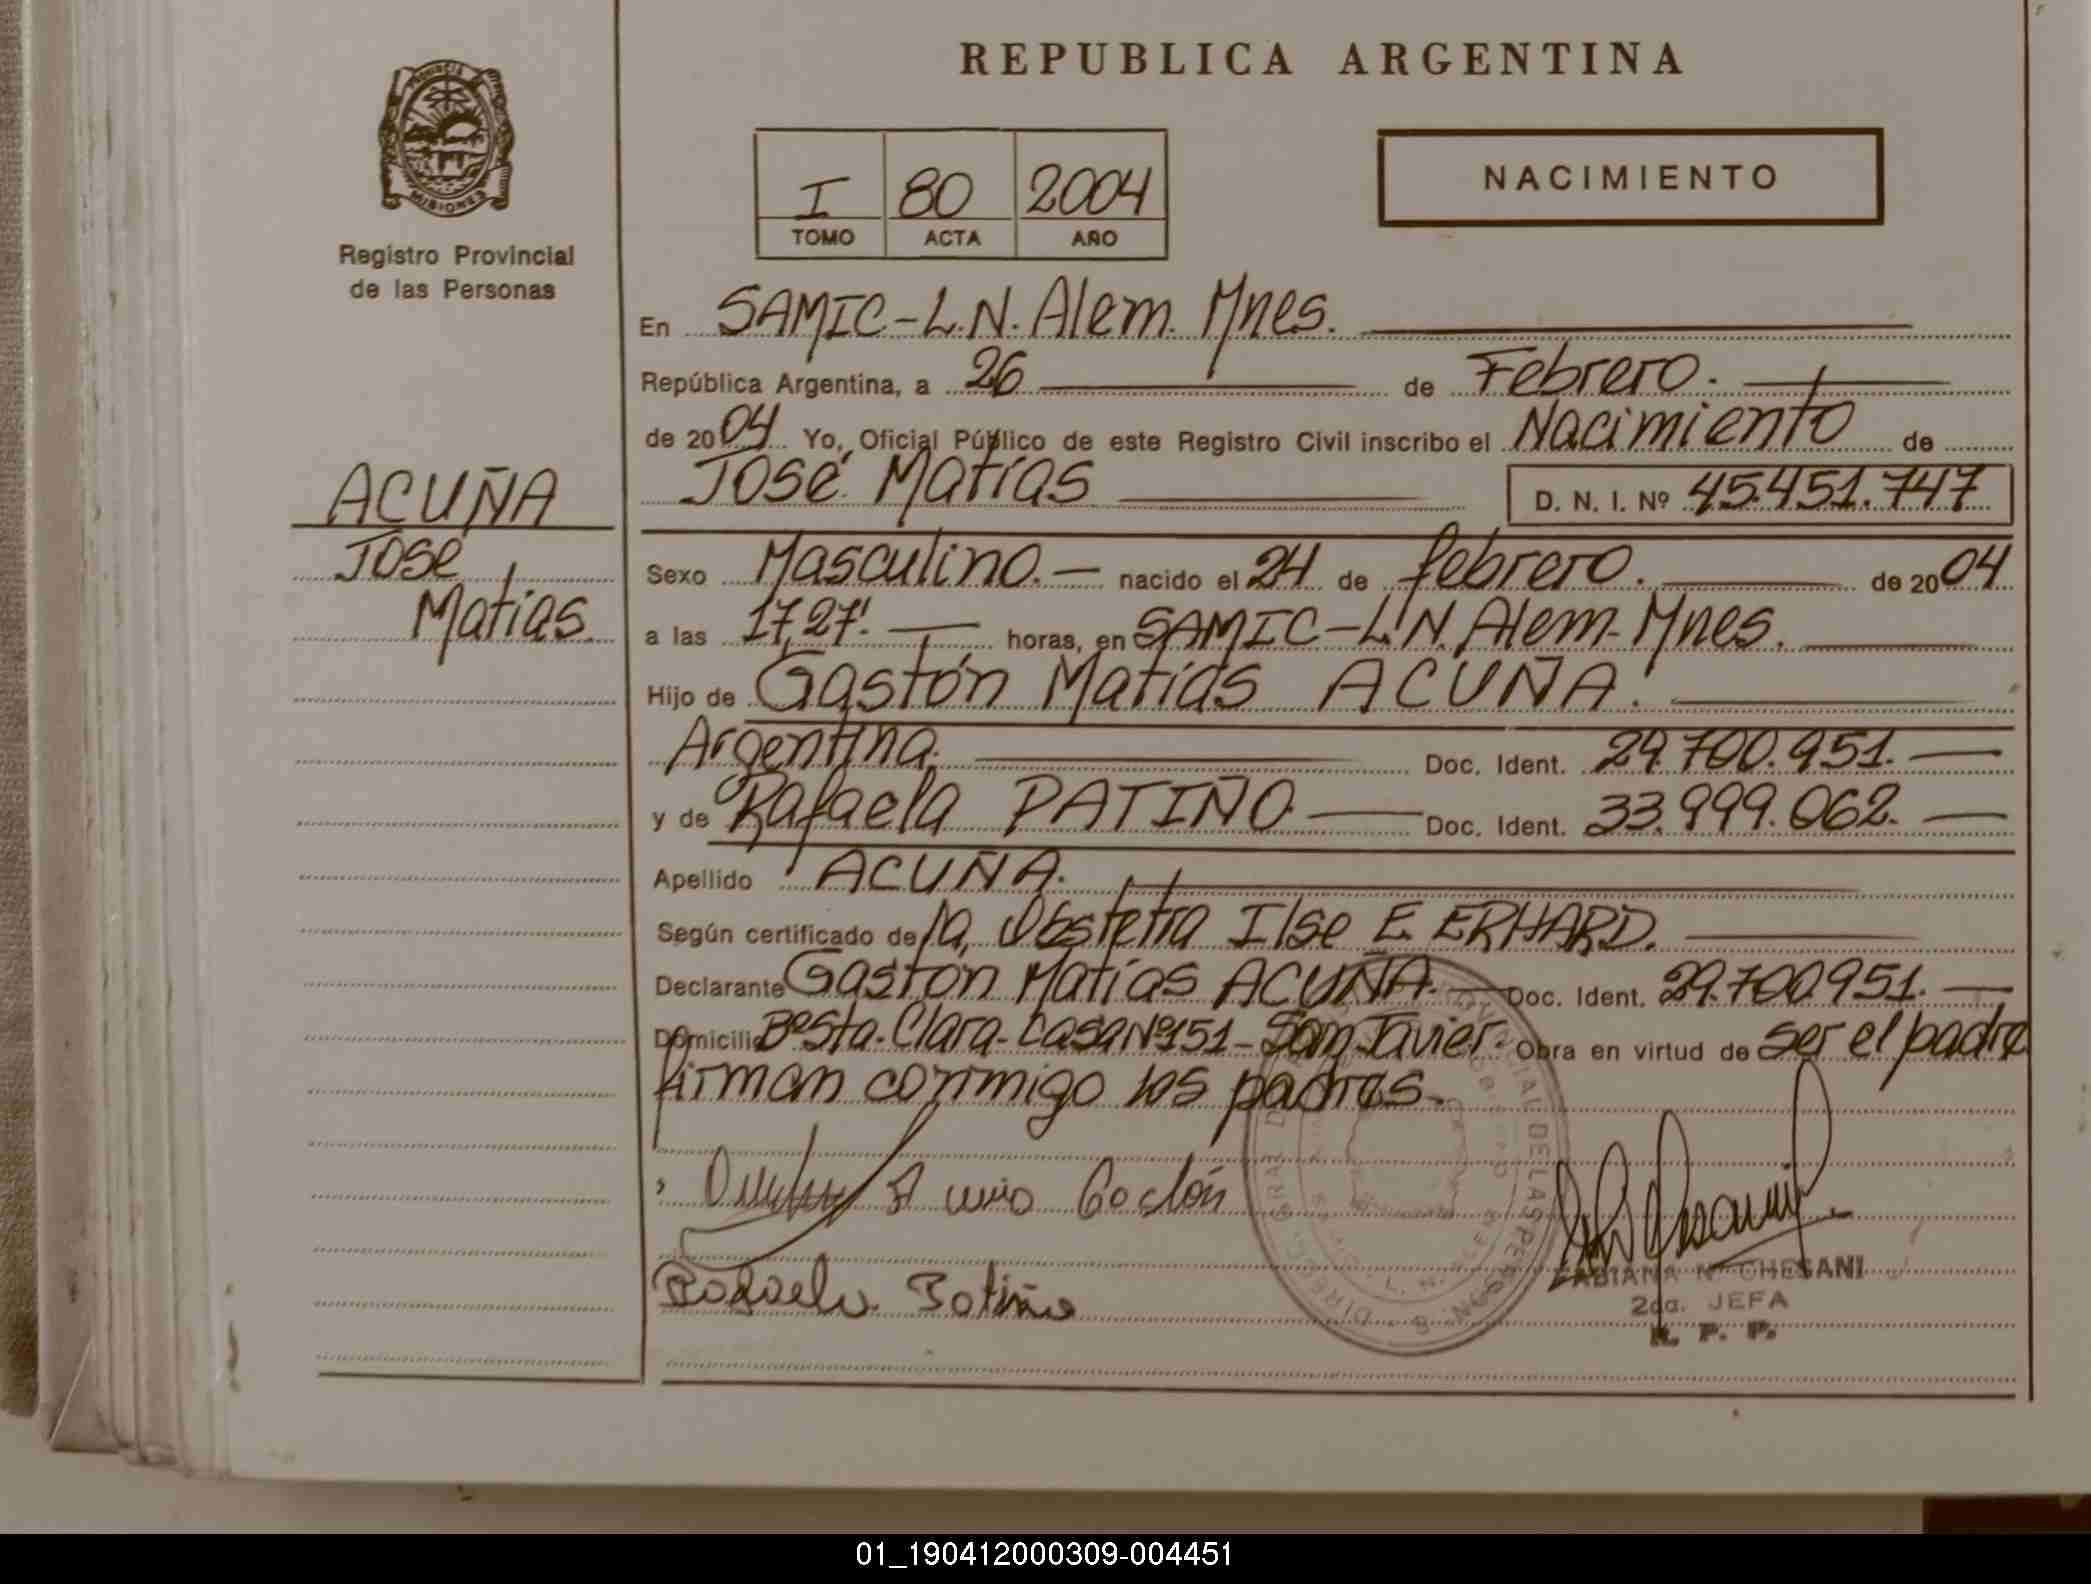 REPUBLICA ARGENTINA
PROVINCIA
MISIONES
Registro Provincial
de las Personas
I 80 2004
TOMO ACTA AÑO
NACIMIENTO
ACUÑA
José
Matías
En SAMIC-L.N. Alem. Mnes.
República Argentina, a 26 de Febrero.
de 2004 Yo, Oficial Público de este Registro Civil inscribo el Nacimiento de
José Matías D. N. I. Nº 45.451.747
Sexo Masculino.- nacido el 24 de febrero. de 2004
a las 17,27'. horas, en SAMIC-L.N. Alem. Mnes.
Hijo de Gastón Matías ACUÑA.
Argentina. Doc. Ident. 29.700.951.-
y de Rafaela PATIÑO Doc. Ident. 33.999.062.-
Apellido ACUÑA.
Según certificado de la Obstetra Ilse E. ERHARD.
Declarante Gastón Matías ACUÑA.- Doc. Ident. 29.700.951.-
Domicilio Bº Sta. Clara- Casa Nº 151- San Javier. Obra en virtud de ser el padre
firman conmigo los padres.
FABIANA N. CHESANI
2da. JEFA
R. P. P.
01_190412000309-004451